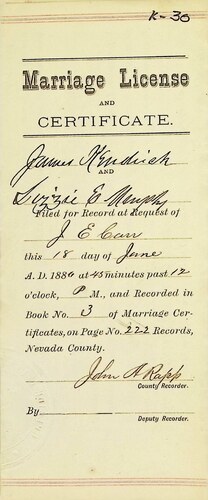 K-30
Marriage License
AND
CERTIFICATE.
James Kendrick
AND
Lizzie E Murphy
Filed for Record at Request of
J E Carr
this 18 day of June
A. D. 1880 at 45 minutes past 12
o'clock, P M., and Recorded in
Book No. 3 of Marriage Cer-
tificates, on Page No. 222 Records,
Nevada County.
John A Rapp
County Recorder.
By
Deputy Recorder.